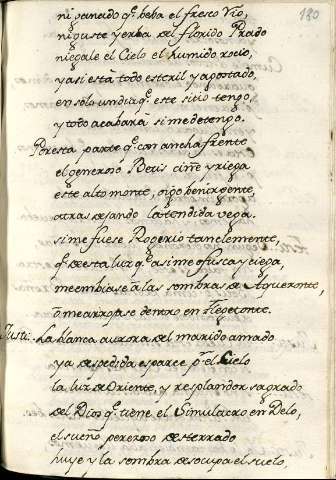 180
ni ganado q̃ beba el fresco rio,
ni guste yerba del florido Prado
niegale el Cielo el humido rocio,
y asi está todo esteril y agostado,
en solo un dia q̃ este sitio tengo,
y todo acabará si me detengo.
Por esta parte q̃ con ancha frente
el generoso Betis ciñe y riega
este alto monte, oigo venir gente,
atras dejando la tendida vega.
si me fuese Rogerio tan clemente,
q̃ de esta luz q̃ asi me ofusca y ciega,
me embiase á las sombras de Aqueronte,
ó me arrojase dentro en Flegetonte.
Justi. La blanca aurora del marido amado
ya despedida esparce pr el Cielo
la luz de Oriente, y resplandor sagrado
del Dios q̃ tiene el Simulacro en Delo,
el sueño perezoso desterrado
huye y la sombra desocupa el suelo,